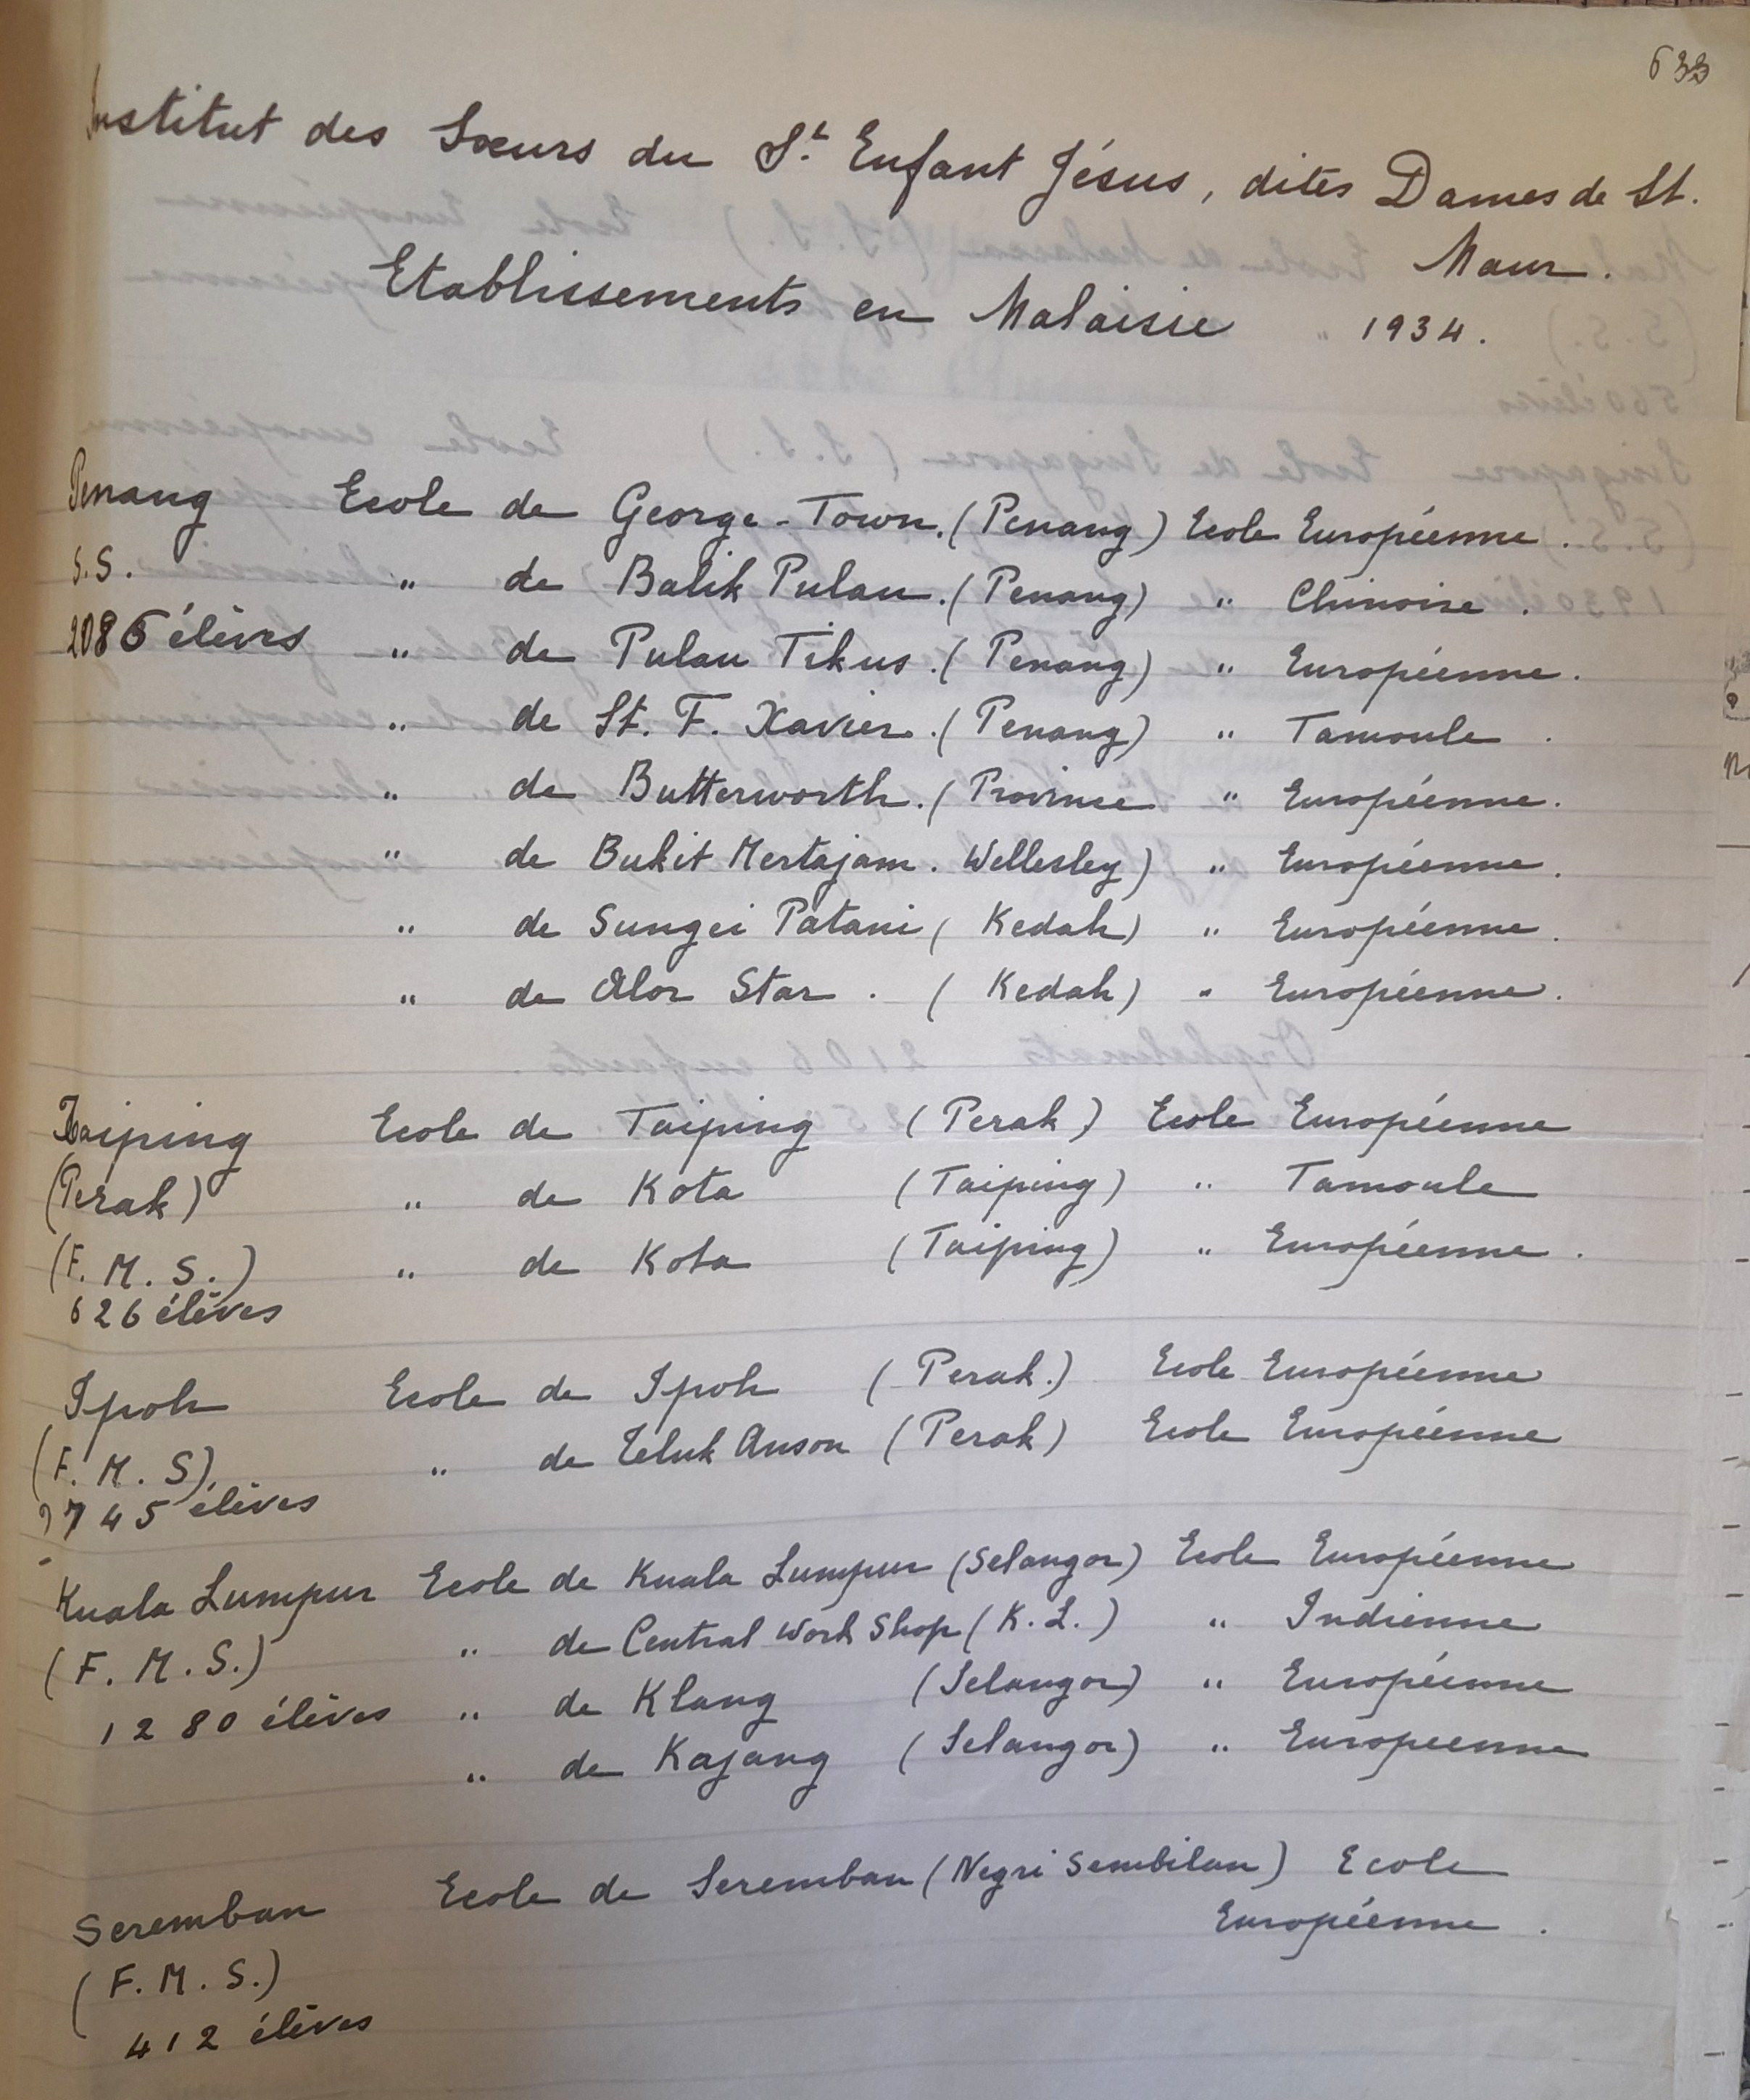 633
Institut des Sœurs du St. Enfant Jésus, dites Dames de St.
Maur.
Etablissements en Malaisie " 1934.
Penang Ecole de George-Town. (Penang) Ecole Européenne.
S.S. " de Balik Pulau. (Penang) " Chinoise.
2086 élèves " de Pulau Tikus. (Penang) " Européenne.
" de St. F. Xavier. (Penang) " Tamoule.
" de Butterworth. (Province " Européenne.
" de Bukit Mertajam. Wellesley) " Européenne.
" de Sungei Patani (Kedah) " Européenne.
" de Alor Star. (Kedah) " Européenne.
Taiping Ecole de Taiping (Perak) Ecole Européenne
(Perak) " de Kota (Taiping) " Tamoule
(F. M. S.) " de Kota (Taiping) " Européenne.
626 élèves
Ipoh Ecole de Ipoh (Perak.) Ecole Européenne
(F. M. S). " de Teluk Anson (Perak) Ecole Européenne
745 élèves
Kuala Lumpur Ecole de Kuala Lumpur (Selangor) Ecole Européenne
(F. M. S.) " de Central Work Shop (K. L.) " Indienne
1280 élèves " de Klang (Selangor) " Européenne
" de Kajang (Selangor) " Europeenne
Seremban Ecole de Seremban (Negri Sembilan) Ecole
Européenne.
(F. M. S.)
412 élèves